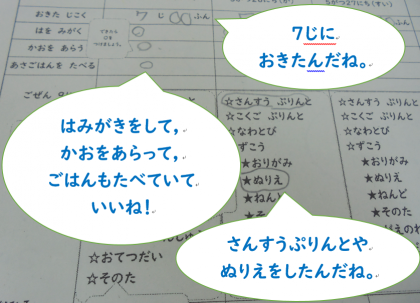 おきた じこく
7じ 00ふん
はを みがく
かおを あらう
あさごはんを たべる
できたら
○を
つけましょう。
7じに
おきたんだね。
はみがきをして,
かおをあらって,
ごはんもたべていて
いいね!
ごぜん
☆さんすう ぷりんと
☆こくご ぷりんと
☆なわとび
ずこう
★おりがみ
★ぬりえ
★ねんど
☆おてつだい
☆そのた
☆さんすう ぷりんと
☆こくご ぷりんと
☆なわとび
☆ずこう
★おりがみ
★ぬりえ
★ねんど
★そのた
さんすうぷりんとや
ぬりえをしたんだね。